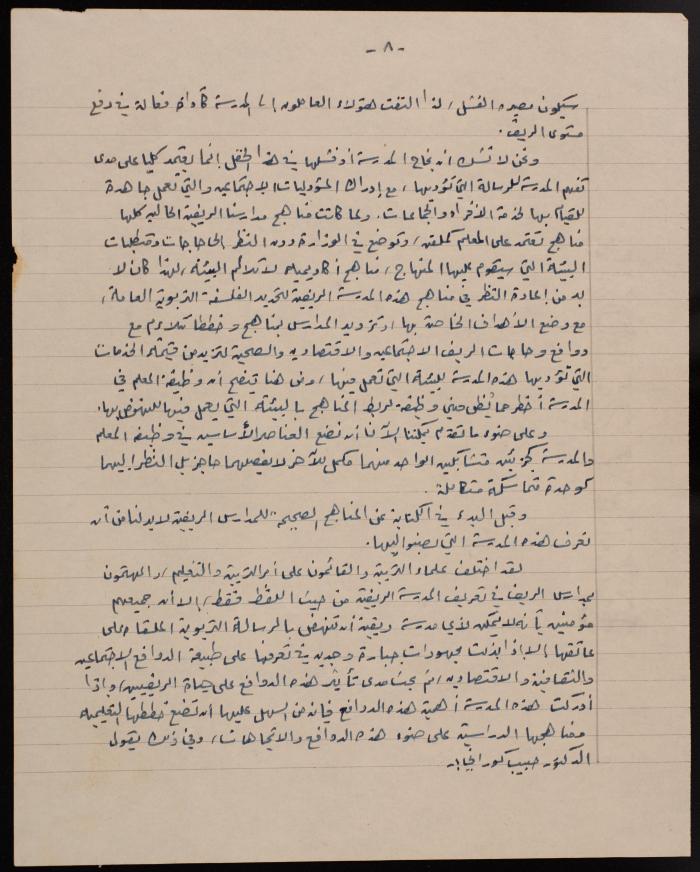 - ٨ -
سيكون مصيره الفشل، لذا التفت هؤلاء العاملون الى المدرسة كأداة فعالة في رفع
مستوى الريف.
ونحن لا نشك ان نجاح المدرسة أو فشلها في هذا الحقل إنما يعتمد كليا على مدى
تفهم المدرسة للرسالة التي تؤديها، مع إدراك المسؤوليات الاجتماعيه والتي تعمل جاهدة
للقيام بها لخدمة الأفراد والجماعات. ولما كانت مناهج مدارسنا الريفية الحاليه كلها
مناهج تعتمد على المعلم كملقن، وتوضع في الوزارة دون النظر الى حاجات ومتطلبات
البيئة التي سيقوم عليها المنهاج، مناهج أكاديميه لا تلائم البيئه، لهذا كان لا
بد من إعادة النظر في مناهج هذه المدرسة الريفية لتحديد الفلسفة التربوية العامة،
مع وضع الأهداف الخاصة بها، وتزويد المدارس بمناهج وخططا تتلاءم مع
دوافع وحاجات الريف الاجتماعيه والاقتصاديه والصحية لتزيد من قيمة الخدمات
التي تؤديها هذه المدرسة للبيئة التي تعمل فيها، ومن هنا يتضح أن وظيفة المعلم في
المدرسة أخطر مما نظن وهي وظيفة لربط المناهج بالبيئه التي يعمل فيها للنهوض بها.
وعلى ضوء ما تقدم يمكننا الآن أن نضع العناصر الأساسيه في وظيفة المعلم
والمدرسة كجزئين متشابكين الواحد منهما مكمل للآخر لا يفصلهما حاجز بل النظر اليهما
كوحدة متماسكة متكاملة.
وقبل البدء في الكتابة عن المناهج الصحيحة للمدارس الريفية لا بد لنا من أن
نعرف هذه المدرسة التي نصبو اليها.
لقد اختلف علماء التربية والقائمون على أمر التربية والتعليم، والمهتمون
بمدارس الريف في تعريف المدرسة الريفية من حيث اللفظ فقط، إلا أن جميعهم
مؤمنين بأنه لا يمكن لأي مدرسة ريفية أن تنهض بالرسالة التربوية الملقاة على
عاتقها إلا إذا بذلت مجهودات جبارة وجديه في تعرفها على طبيعة الدوافع الاجتماعيه
والثقافية والاقتصاديه، ثم بحث مدى تأثير هذه الدوافع على حياة الريفيين، وإذا
أدركت هذه المدرسة أهمية هذه الدوافع فإنه من السهل عليها أن تضع خططها التعليميه
ومناهجها الدراسية على ضوء هذه الدوافع والاتجاهات، وفي ذلك يقول
الدكتور حبيب كوراني:-